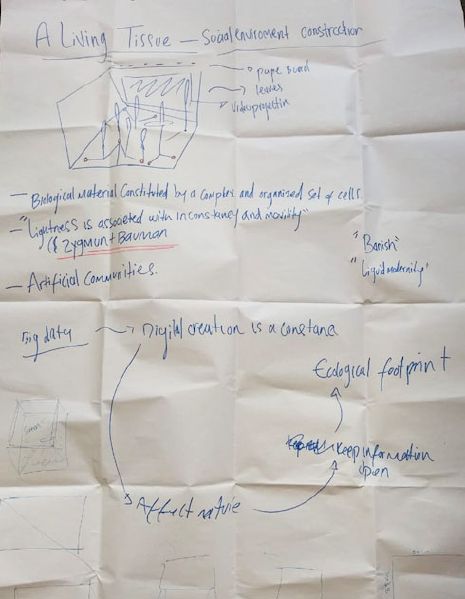 A Living Tissue — Social enviroment construction
leaves
videoprojection
— Biological material constituted by a complex and organized set of cells.
— "Lightness is associated with inconstancy and movility"
Zygmunt Bauman
"Banish"
"Liquid modernity"
— Artificial Communities.
Big data
Digital creation is a constane
Ecological footprint
keep information
open
Affect nature